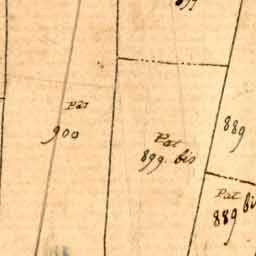 Pat
900
Pat
899 bis
889
Pat
889 bis